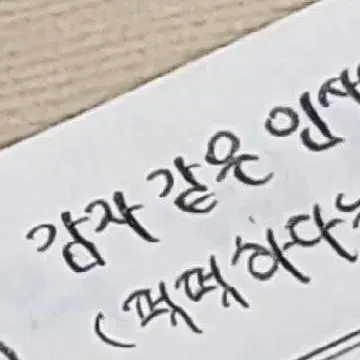 감자 같은 인사
(퍽퍽하다는